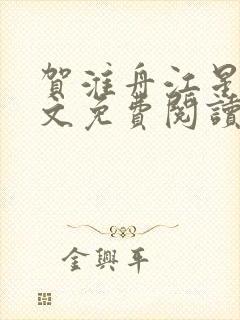 賀淮舟江星
文免費閱讀
金興平